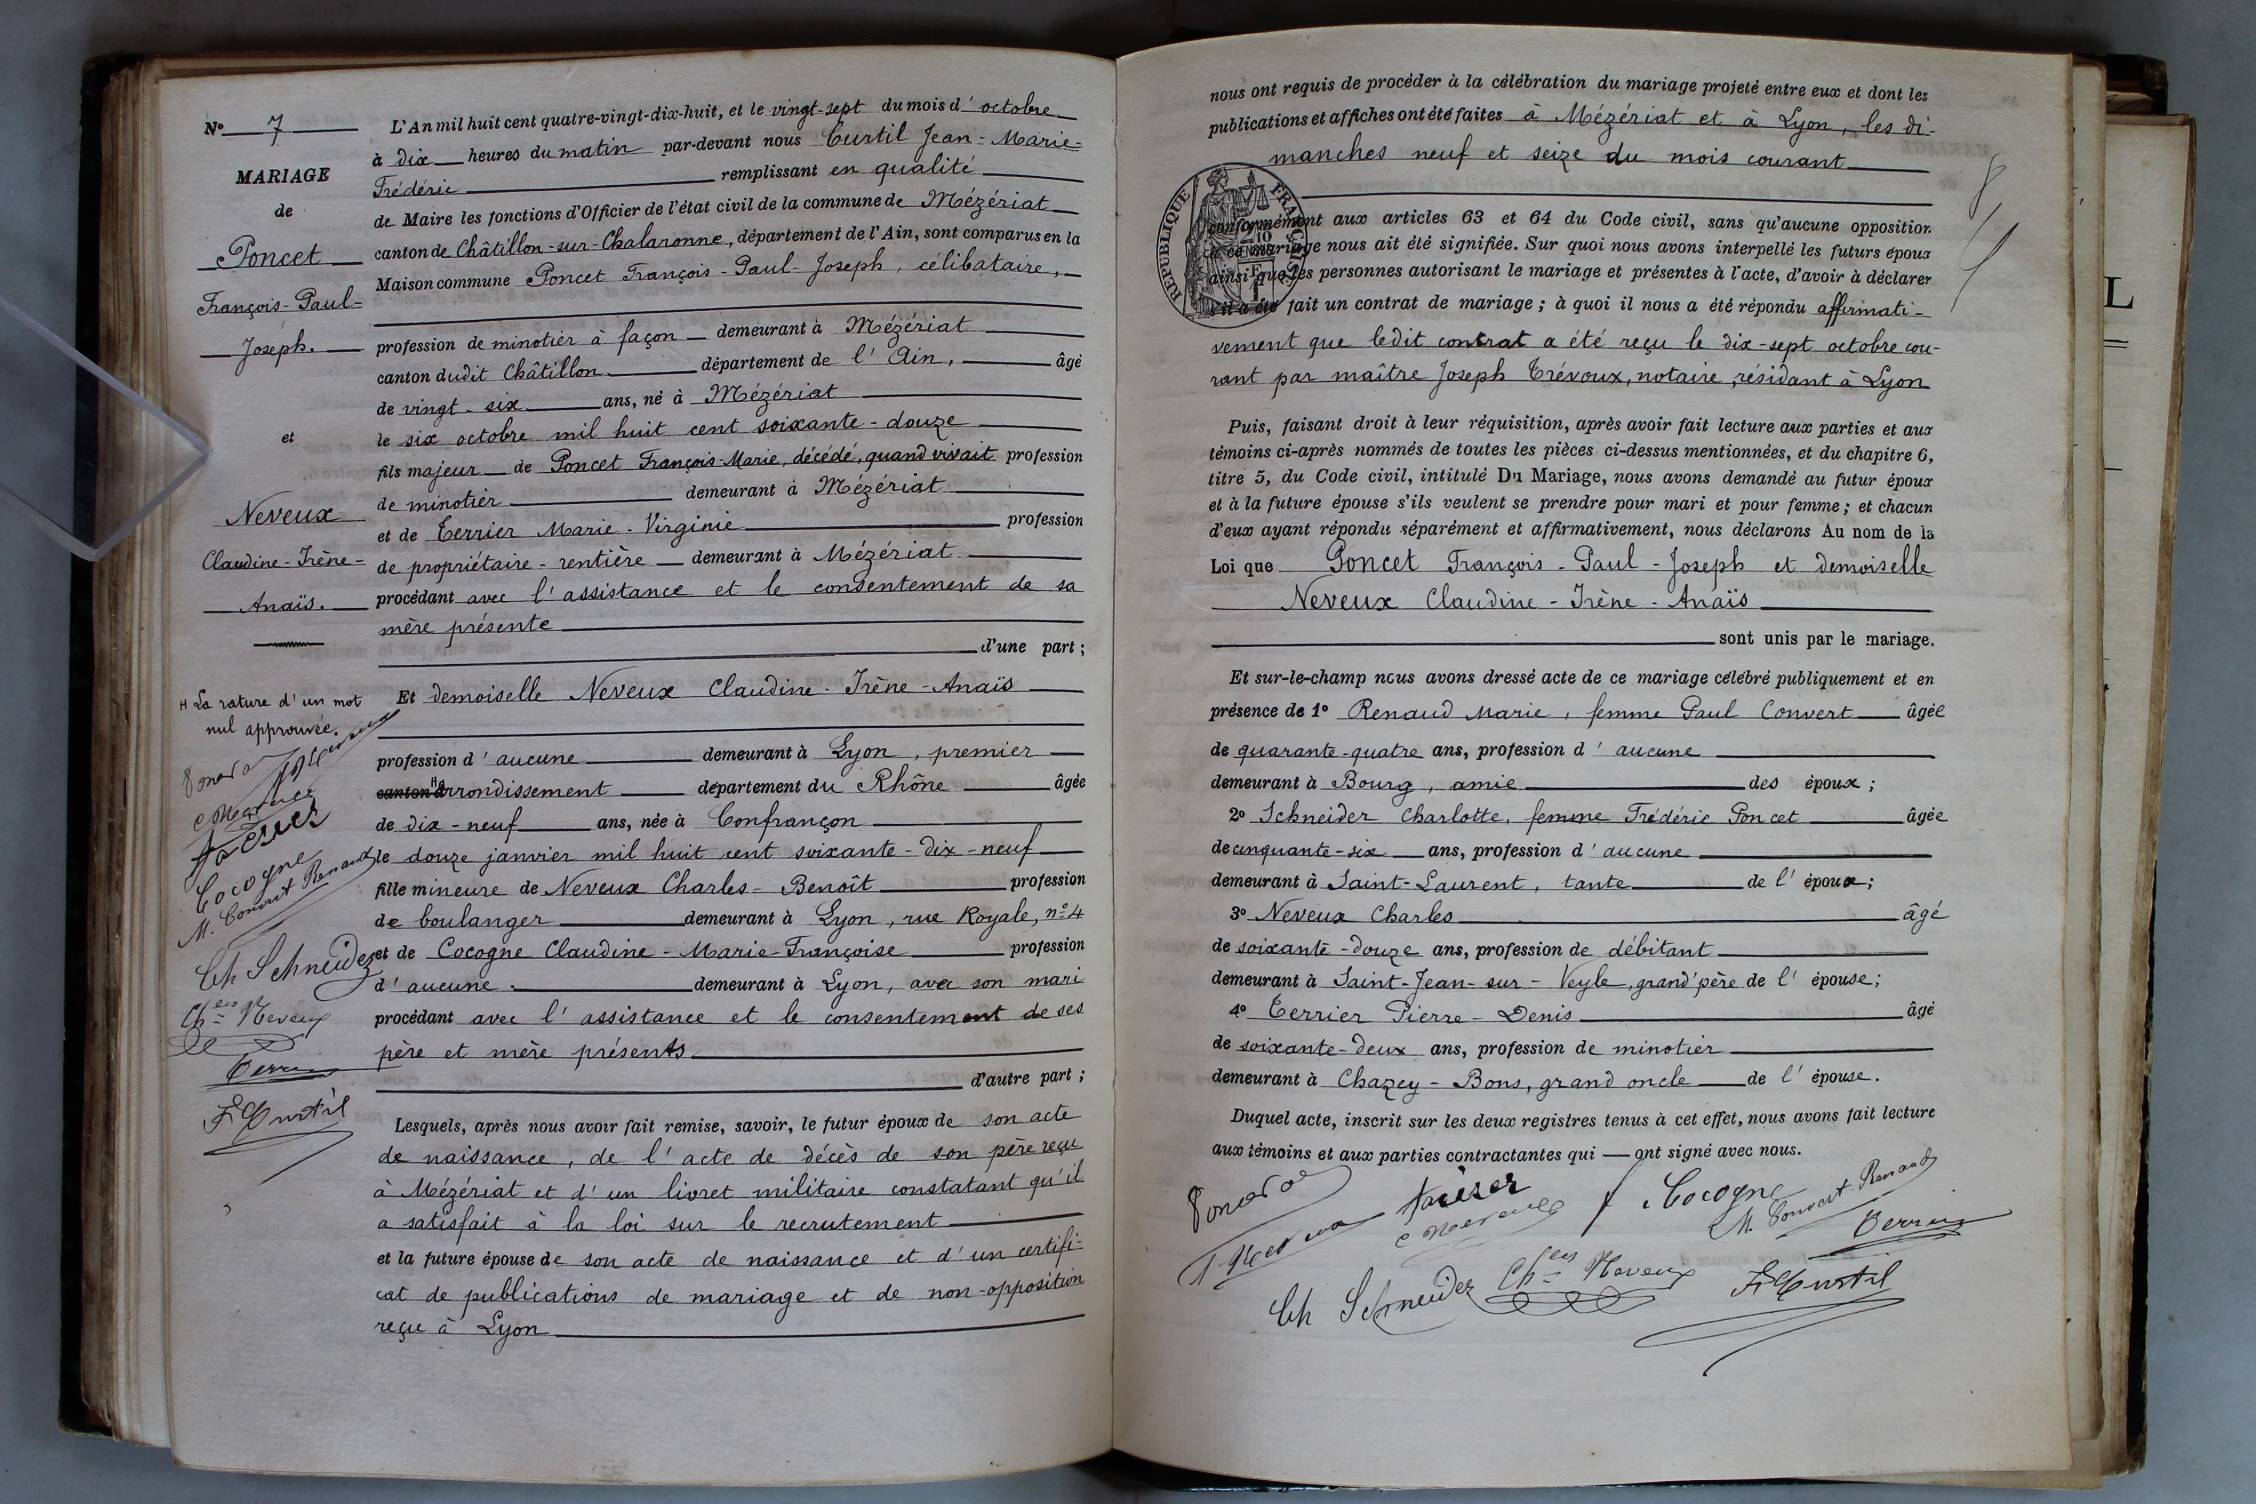 N° 7
MARIAGE
de
Poncet
François-Paul-
Joseph.
et
Neveux
Claudine-Irène-
Anaïs.
H La rature d'un mot
nul approuvée.
Cocogne
M. Convert Renaud
Ch Schneider
Ch^les Neveux
Terrier
F Curtil
L'An mil huit cent quatre-vingt-dix-huit, et le vingt-sept du mois d'octobre
à dix heures du matin par-devant nous Curtil Jean-Marie-
Frédéric remplissant en qualité
de Maire les fonctions d'Officier de l'état civil de la commune de Mézériat
canton de Châtillon-sur-Chalaronne, département de l'Ain, sont comparus en la
Maison commune Poncet François-Paul-Joseph, célibataire,
profession de minotier à façon demeurant à Mézériat
canton dudit Châtillon département de l'Ain, âgé
de vingt-six ans, né à Mézériat
le six octobre mil huit cent soixante-douze
fils majeur de Poncet François-Marie, décédé, quand vivait profession
de minotier demeurant à Mézériat
et de Terrier Marie-Virginie profession
de propriétaire-rentière demeurant à Mézériat
procédant avec l'assistance et le consentement de sa
mère présente
d'une part ;
Et demoiselle Neveux Claudine-Irène-Anaïs
profession d'aucune demeurant à Lyon, premier
canton H arrondissement département du Rhône âgée
de dix-neuf ans, née à Confrançon
le douze janvier mil huit cent soixante-dix-neuf
fille mineure de Neveux Charles-Benoît profession
de boulanger demeurant à Lyon, rue Royale, n° 4
et de Cocogne Claudine-Marie-Françoise profession
d'aucune. demeurant à Lyon, avec son mari
procédant avec l'assistance et le consentement de ses
père et mère présents
d'autre part ;
Lesquels, après nous avoir fait remise, savoir, le futur époux de son acte
de naissance, de l'acte de décès de son père reçu
à Mézériat et d'un livret militaire constatant qu'il
a satisfait à la loi sur le recrutement
et la future épouse de son acte de naissance et d'un certifi-
cat de publications de mariage et de non-opposition
reçu à Lyon
nous ont requis de procéder à la célébration du mariage projeté entre eux et dont les
publications et affiches ont été faites à Mézériat et à Lyon, les di-
manches neuf et seize du mois courant
RÉPUBLIQUE FRANÇAISE
conformément aux articles 63 et 64 du Code civil, sans qu'aucune opposition
à ce mariage nous ait été signifiée. Sur quoi nous avons interpellé les futurs époux
ainsi que les personnes autorisant le mariage et présentes à l'acte, d'avoir à déclarer
s'il a été fait un contrat de mariage ; à quoi il nous a été répondu affirmati-
vement que ledit contrat a été reçu le dix-sept octobre cou-
rant par maître Joseph Trévoux, notaire, résidant à Lyon
Puis, faisant droit à leur réquisition, après avoir fait lecture aux parties et aux
témoins ci-après nommés de toutes les pièces ci-dessus mentionnées, et du chapitre 6,
titre 5, du Code civil, intitulé Du Mariage, nous avons demandé au futur époux
et à la future épouse s'ils veulent se prendre pour mari et pour femme ; et chacun
d'eux ayant répondu séparément et affirmativement, nous déclarons Au nom de la
Loi que Poncet François-Paul-Joseph et demoiselle
Neveux Claudine-Irène-Anaïs
sont unis par le mariage.
Et sur-le-champ nous avons dressé acte de ce mariage célébré publiquement et en
présence de 1° Renaud Marie, femme Paul Convert âgée
de quarante-quatre ans, profession d'aucune
demeurant à Bourg, amie des époux ;
2° Schneider Charlotte, femme Frédéric Poncet âgée
de cinquante-six ans, profession d'aucune
demeurant à Saint-Laurent, tante de l'époux ;
3° Neveux Charles âgé
de soixante-douze ans, profession de débitant
demeurant à Saint-Jean-sur-Veyle, grand'père de l'épouse ;
4° Terrier Pierre-Denis âgé
de soixante-deux ans, profession de minotier
demeurant à Chazey-Bons, grand oncle de l'épouse.
Duquel acte, inscrit sur les deux registres tenus à cet effet, nous avons fait lecture
aux témoins et aux parties contractantes qui ont signé avec nous.
Cocogne
M. Convert Renaud
Terrier
Ch Schneider Ch^les Neveux F Curtil